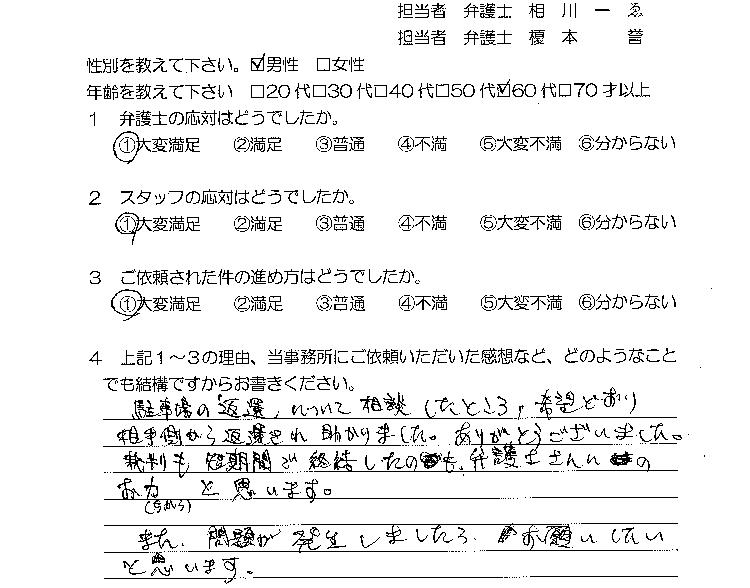 担当者 弁護士 相川一ゑ
担当者 弁護士 榎本 誉
性別を教えて下さい。☑男性 □女性
年齢を教えて下さい □20代□30代□40代□50代☑60代□70才以上
1 弁護士の応対はどうでしたか。
①大変満足 ②満足 ③普通 ④不満 ⑤大変不満 ⑥分からない
2 スタッフの応対はどうでしたか。
①大変満足 ②満足 ③普通 ④不満 ⑤大変不満 ⑥分からない
3 ご依頼された件の進め方はどうでしたか。
①大変満足 ②満足 ③普通 ④不満 ⑤大変不満 ⑥分からない
4 上記1～3の理由、当事務所にご依頼いただいた感想など、どのようなこと
でも結構ですからお書きください。
駐車場の「返還」について相談したところ、希望どおり
相手側から返還され助かりました。ありがとうございました。
裁判も短期間で終結したのも、弁護士さんの
お力(ちから)と思います。
また、問題が発生しましたら、お願いしたい
と思います。